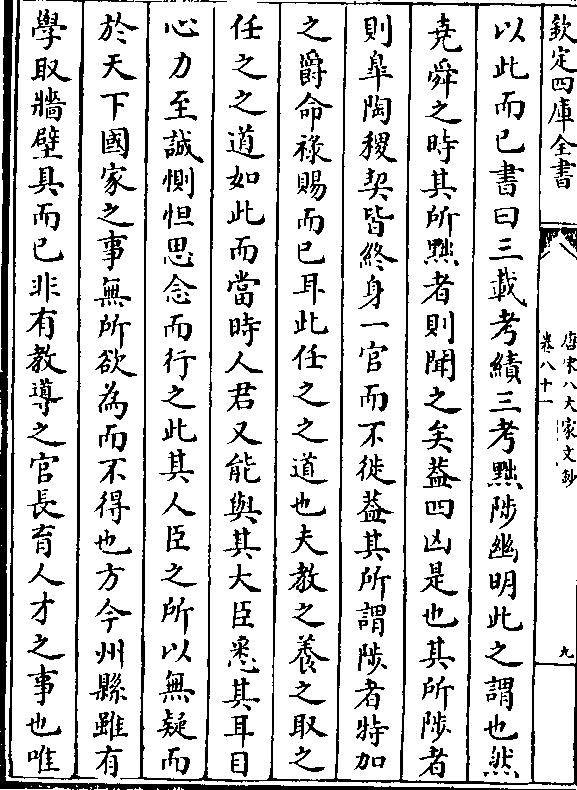 欽定四庫全書
唐宋八大家文鈔
卷八十一
九
以此而已書曰三載考績三考黜陟幽明此之謂也然
堯舜之時其所黜者則聞之矣葢四凶是也其所陟者
則臯陶稷契皆終身一官而不徙葢其所謂陟者特加
之爵命祿賜而已耳此任之之道也夫教之養之取之
任之之道如此而當時人君又能與其大臣悉其耳目
心力至誠惻怛思念而行之此其人臣之所以無疑而
於天下國家之事無所欲為而不得也方今州縣雖有
學取牆壁具而已非有教導之官長育人才之事也唯